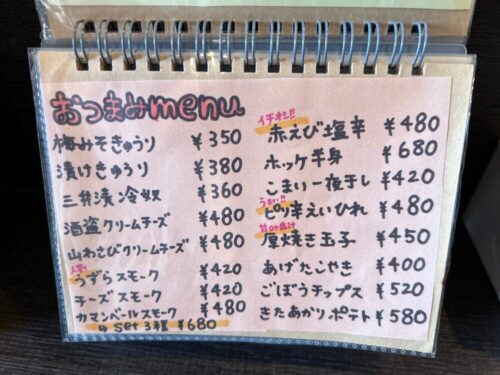 おつまみmenu
梅みそきゅうり ¥350
漬けきゅうり ¥380
三升漬冷奴 ¥360
酒盗クリームチーズ ¥480
山わさびクリームチーズ ¥480
うずらスモーク ¥420
チーズスモーク ¥420
カマンベールスモーク ¥480
4 Set 3種 ¥680
イチオシ!!
赤えび塩辛 ¥480
ホッケ半身 ¥680
こまい一夜干し ¥420
うまい!!
ピリ辛えいひれ ¥480
甘or出汁
厚焼き玉子 ¥450
あげたこやき ¥400
ごぼうチップス ¥520
きたあかりポテト ¥580